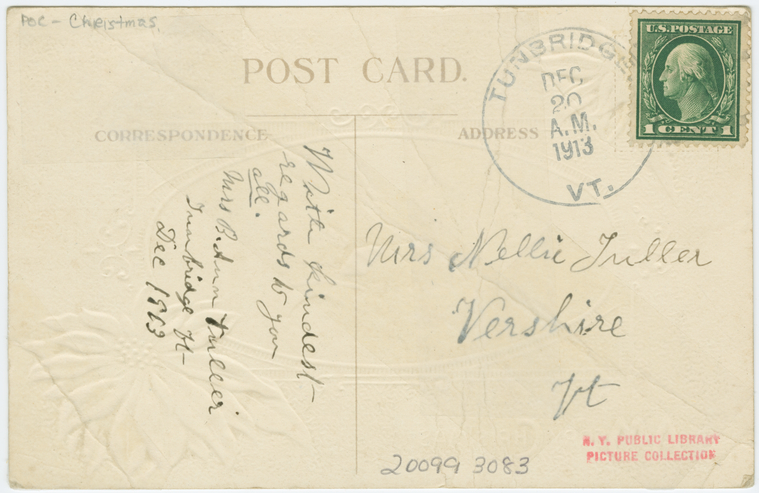 POC - Christmas.
POST CARD.
CORRESPONDENCE
ADDRESS
U.S. POSTAGE
1 CENT 1
TUNBRIDGE
DEC
20
A.M.
1913
VT.
With kindest
regards to you
all.
Mrs B. Ann Fuller
Tunbridge Vt-
Dec 1913
Mrs Nellie Fuller
Vershire
Vt
N. Y. PUBLIC LIBRARY
PICTURE COLLECTION
20099 3083